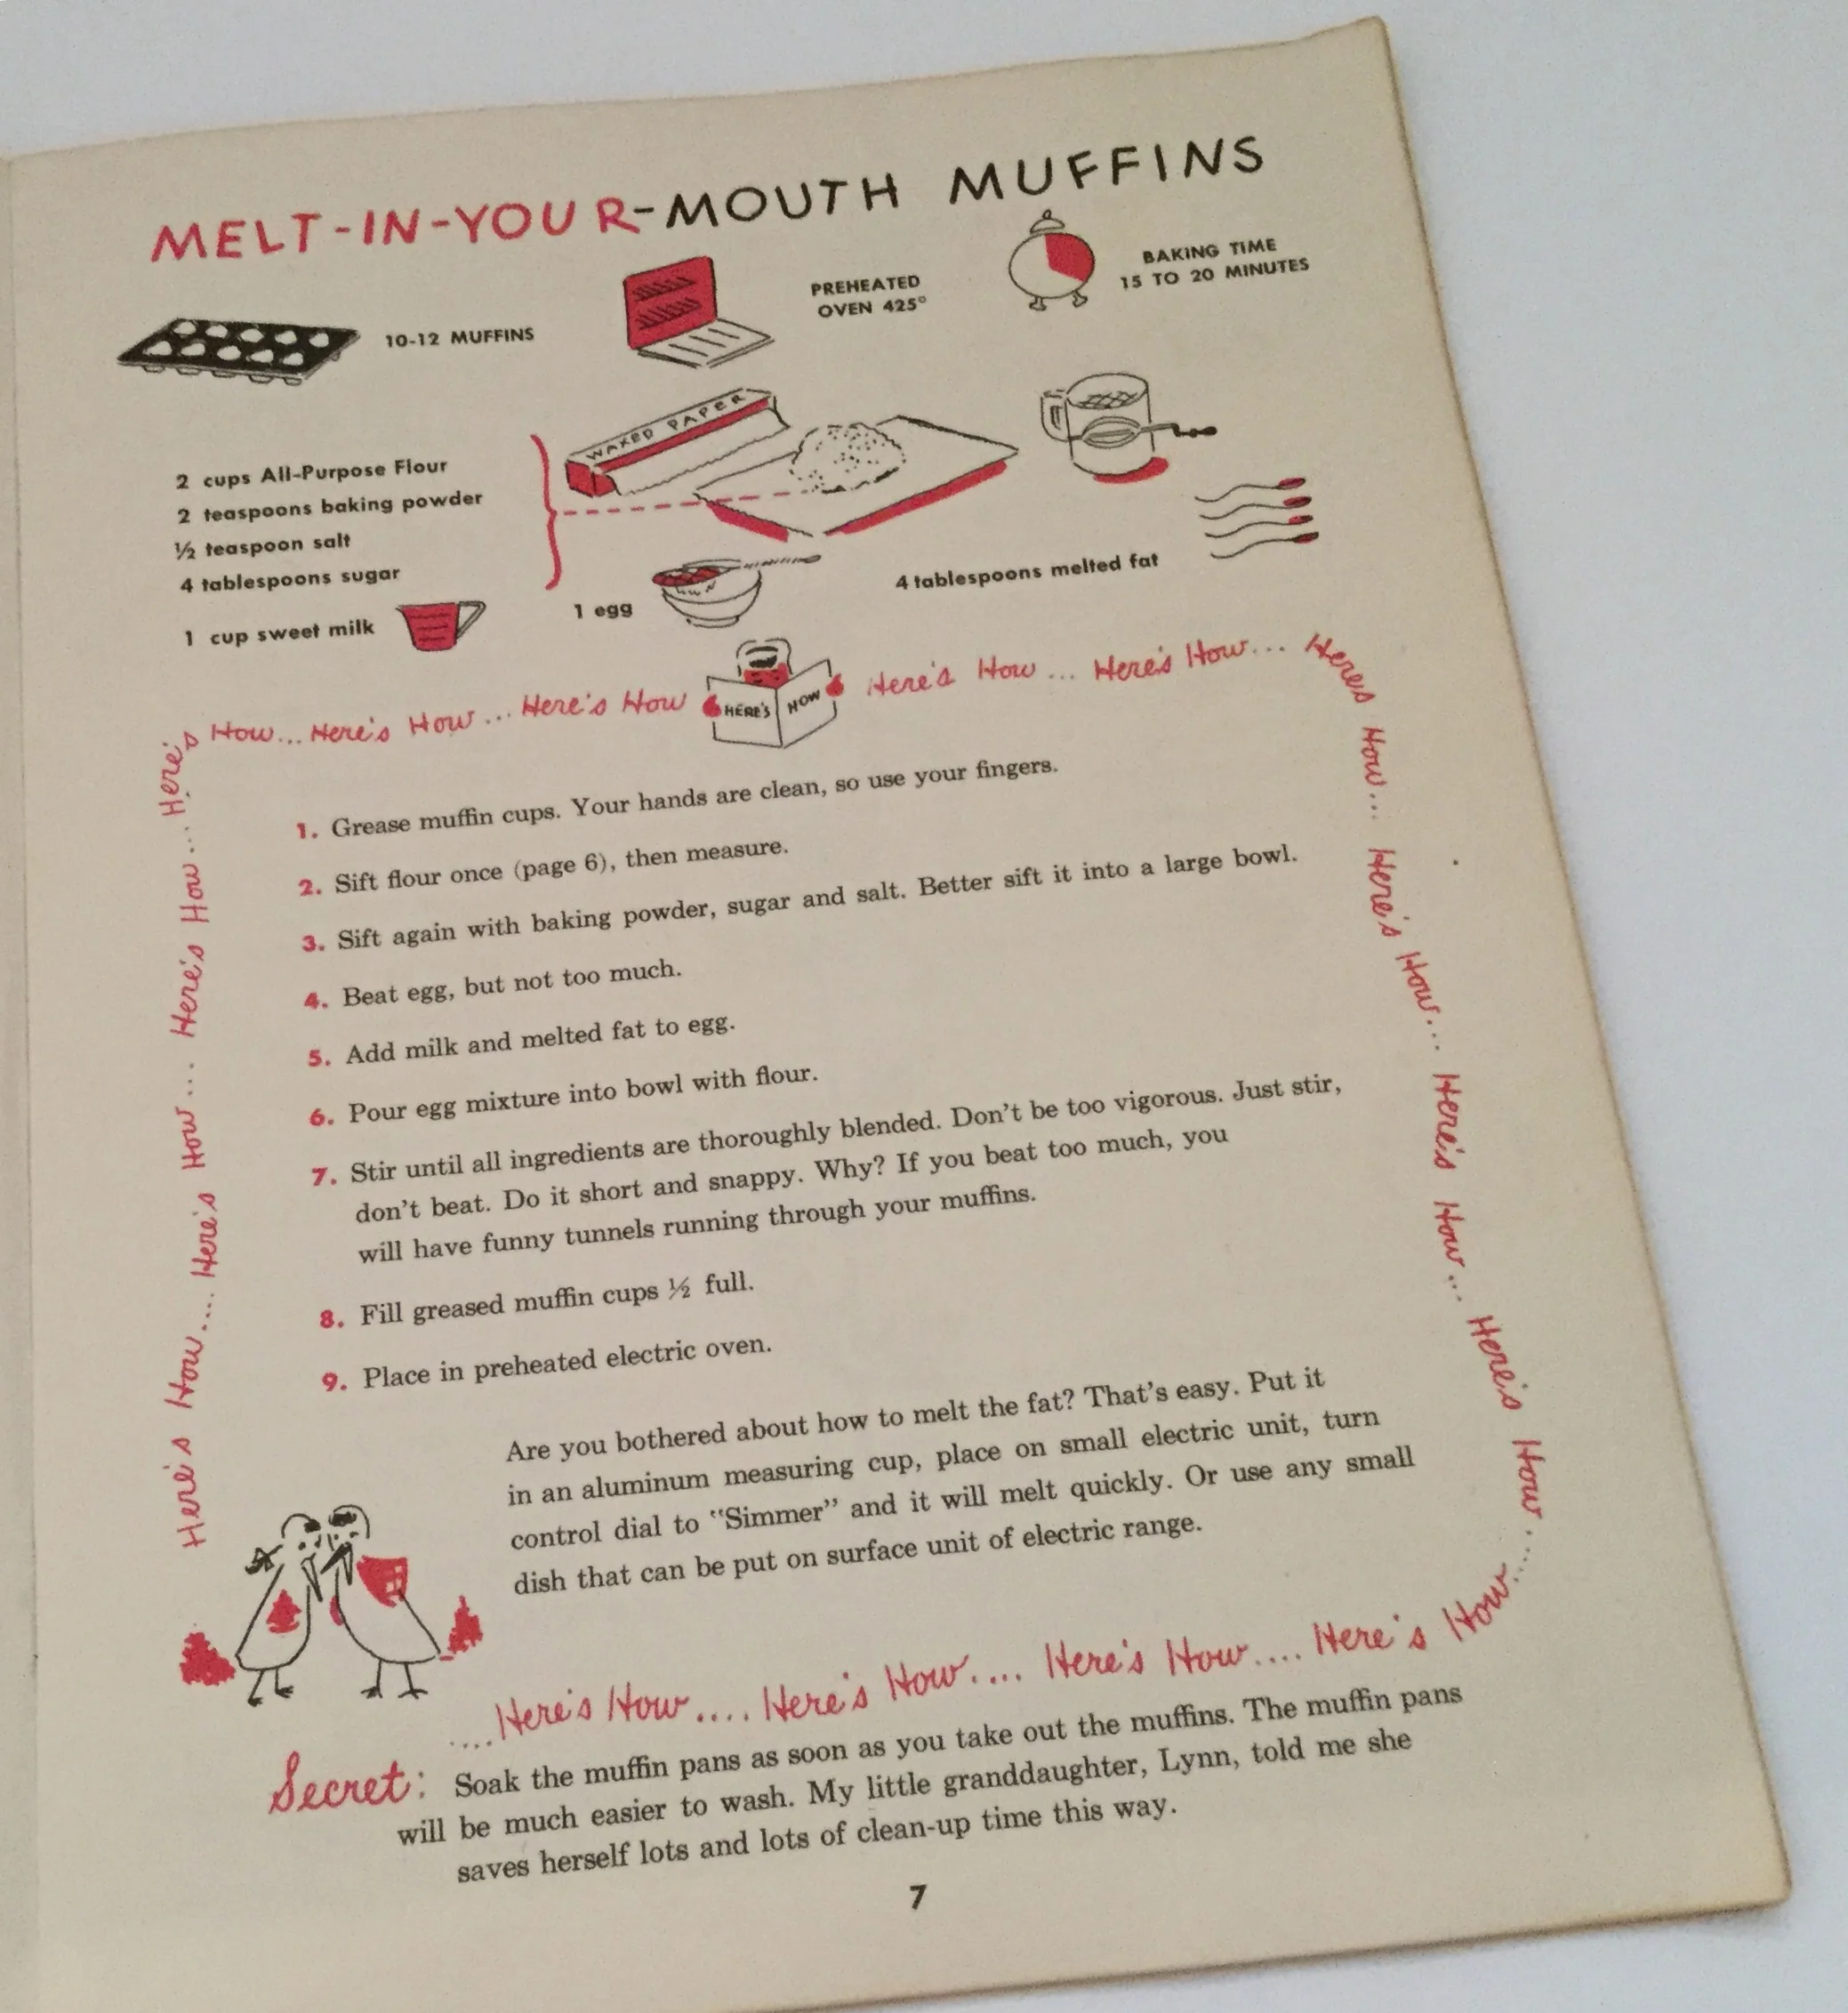 MELT-IN-YOUR-MOUTH MUFFINS
10-12 MUFFINS
PREHEATED
OVEN 425°
BAKING TIME
15 TO 20 MINUTES
WAXED PAPER
2 cups All-Purpose Flour
2 teaspoons baking powder
½ teaspoon salt
4 tablespoons sugar
1 cup sweet milk
1 egg
4 tablespoons melted fat
Here's How... Here's How... Here's How
HERE'S HOW
Here's How... Here's How... Heres How... Here's How... Here's How... Here's How....
Here's How... Here's How... Here's How... Here's How...
1. Grease muffin cups. Your hands are clean, so use your fingers.
2. Sift flour once (page 6), then measure.
3. Sift again with baking powder, sugar and salt. Better sift it into a large bowl.
4. Beat egg, but not too much.
5. Add milk and melted fat to egg.
6. Pour egg mixture into bowl with flour.
7. Stir until all ingredients are thoroughly blended. Don't be too vigorous. Just stir,
don't beat. Do it short and snappy. Why? If you beat too much, you
will have funny tunnels running through your muffins.
8. Fill greased muffin cups ½ full.
9. Place in preheated electric oven.
Are you bothered about how to melt the fat? That's easy. Put it
in an aluminum measuring cup, place on small electric unit, turn
control dial to "Simmer" and it will melt quickly. Or use any small
dish that can be put on surface unit of electric range.
....Here's How.... Here's How.... Here's How.... Here's How....
Secret: Soak the muffin pans as soon as you take out the muffins. The muffin pans
will be much easier to wash. My little granddaughter, Lynn, told me she
saves herself lots and lots of clean-up time this way.
7